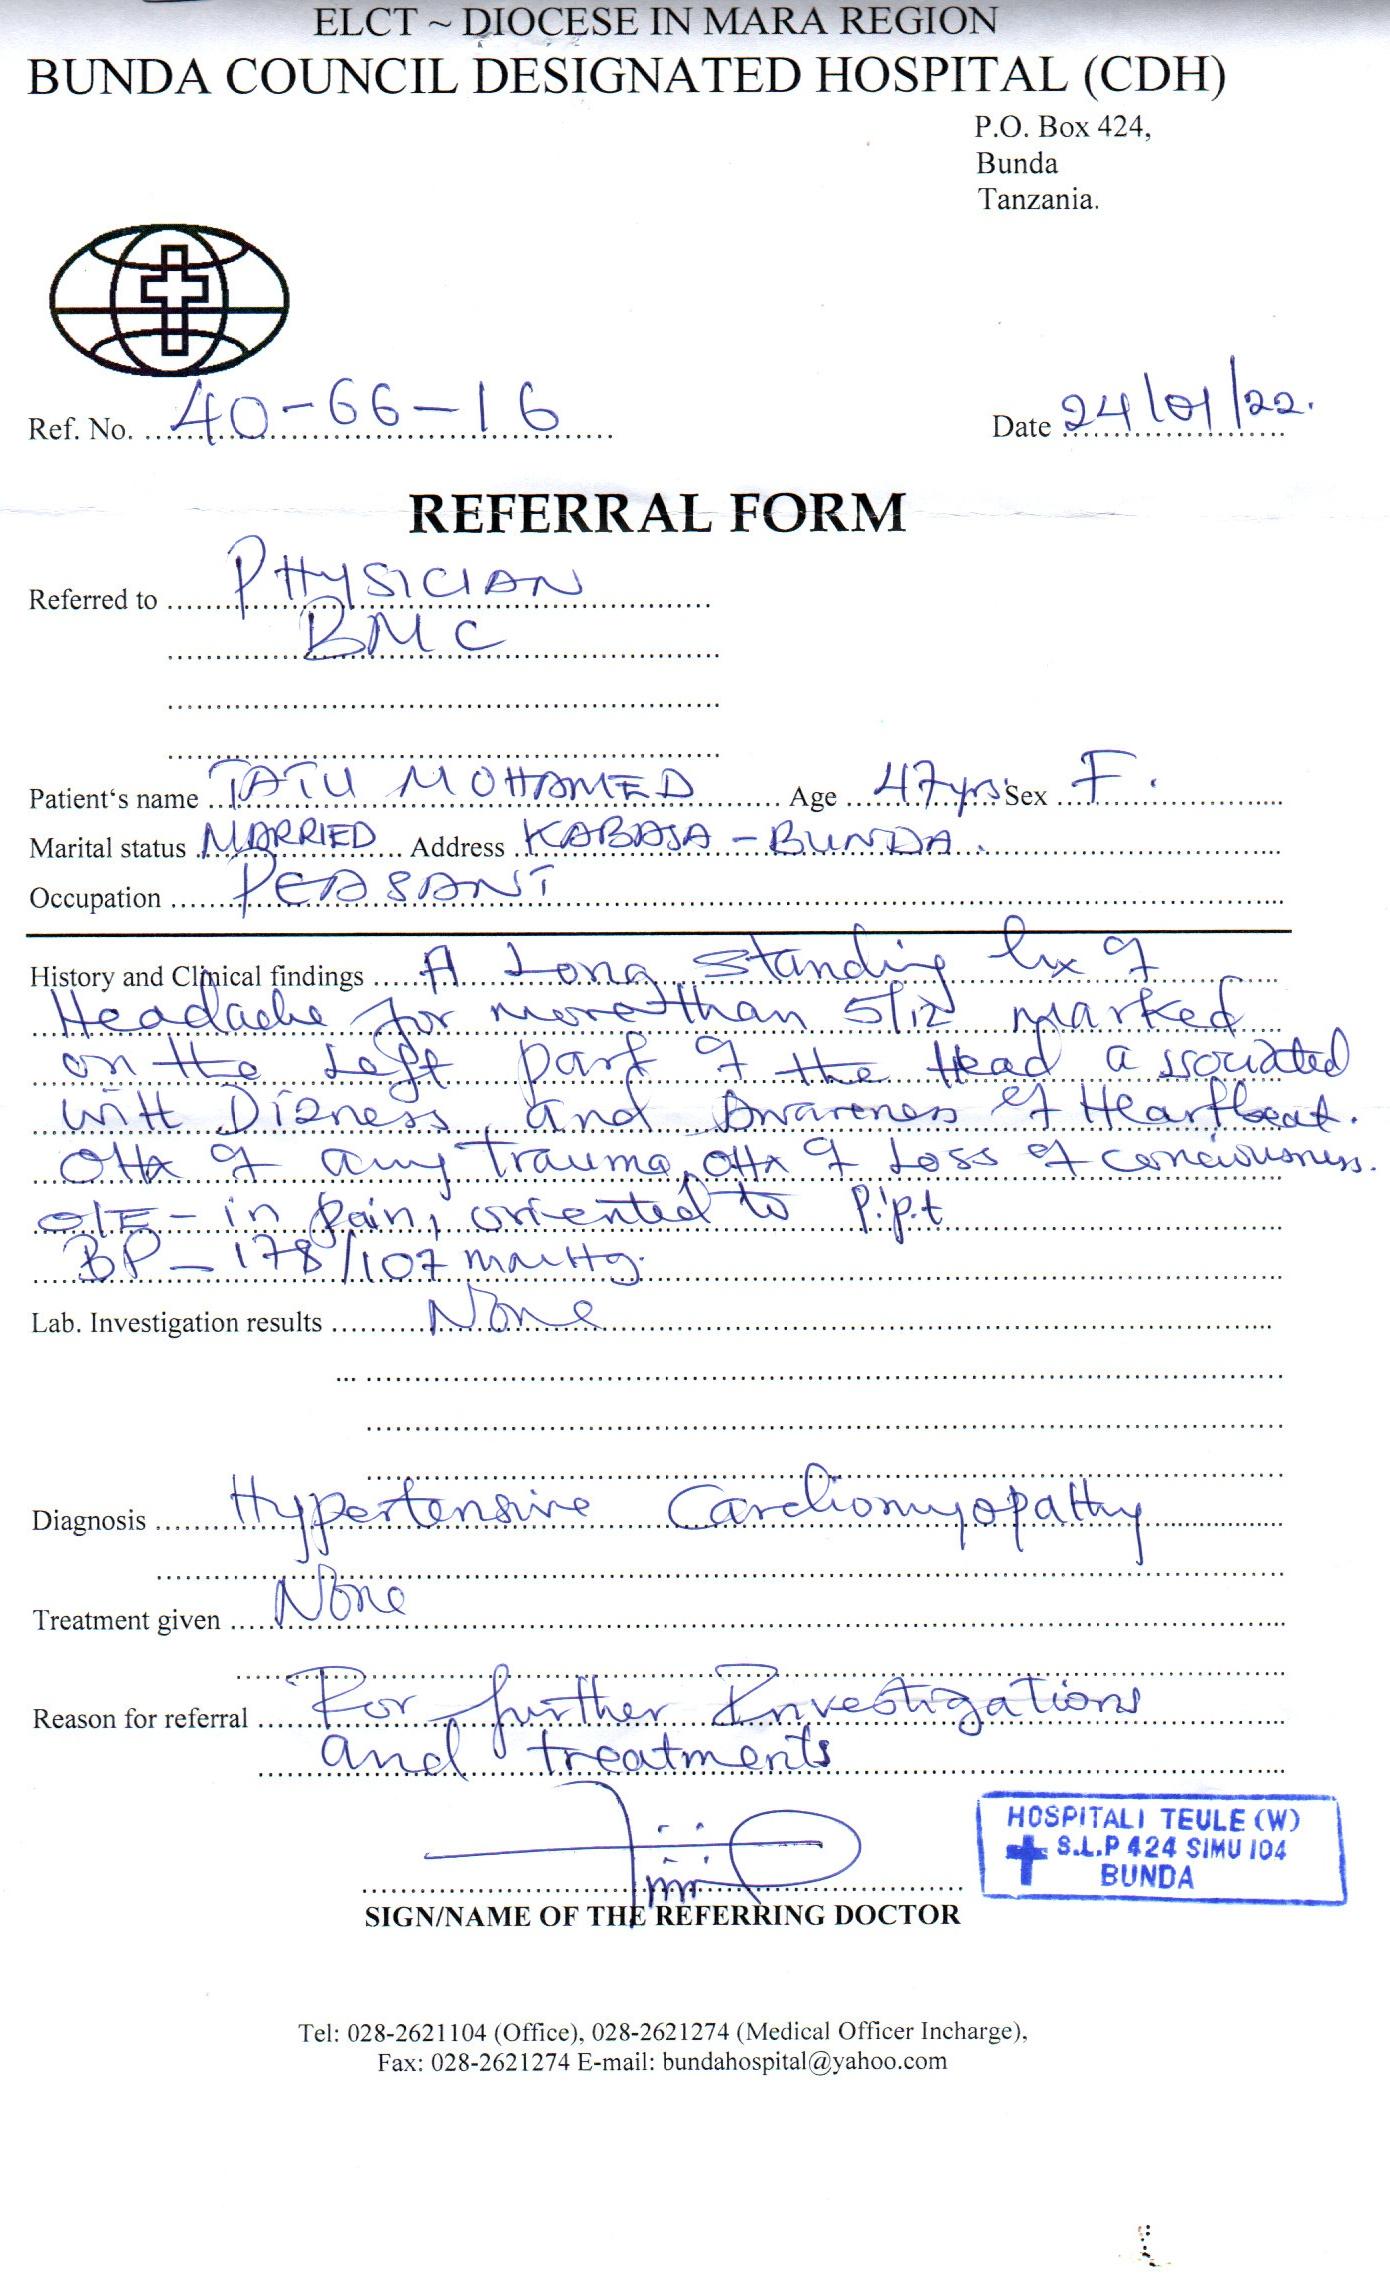 ELCT ~ DIOCESE IN MARA REGION
BUNDA COUNCIL DESIGNATED HOSPITAL (CDH)
P.O. Box 424,
Bunda
Tanzania.
Ref. No. 40-66-16
Date 24/01/22.
REFERRAL FORM
Referred to PHYSICIAN
BMC
Patient's name TATU MOHAMED Age 47yrs Sex F.
Marital status MARRIED Address KABASA - BUNDA.
Occupation PEASANT
History and Clinical findings A Long standing hx of
Headache for more than 5/12 marked
on the Left part of the Head associated
with Dizness and Awareness of Heartbeat.
OHx of any trauma, OHx of Loss of conciousness.
O/E - in pain, oriented to p.p.t
BP - 178/107 mmHg.
Lab. Investigation results None
Diagnosis Hypertensive Cardiomyopathy
Treatment given None
Reason for referral For further Investigations
and treatments
SIGN/NAME OF THE REFERRING DOCTOR
HOSPITALI TEULE (W)
S.L.P 424 SIMU 104
BUNDA
Tel: 028-2621104 (Office), 028-2621274 (Medical Officer Incharge),
Fax: 028-2621274 E-mail: bundahospital@yahoo.com